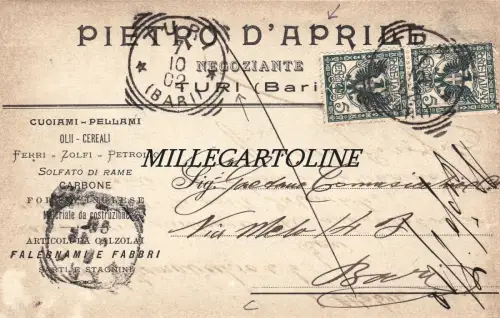 PIETRO D'APRILE
NEGOZIANTE
TURI (Bari)
TURI
7
10
02
(BARI)
CUOIAMI - PELLAMI
OLII - CEREALI
FERRI - ZOLFI - PETROLIO
SOLFATO DI RAME
CARBONE
Materiale da costruzione
ARTICOLI DA CALZOLAI
FALEGNAMI E FABBRI
SARTI E STAGNINI
MILLECARTOLINE
Sig. Gaetano
Via Melo 14
Bari